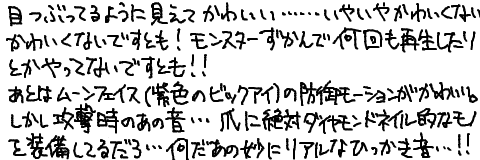 目つぶってるように見えてかわいい……いやいやかわいくない
かわいくないですとも！モンスターずかんで何回も再生したり
とかやってないですとも！！
あとはムーンフェイス(紫色のビックアイ)の防御モーションがかわいい。
しかし攻撃時のあの音…爪に絶対ダイヤモンドネイル的なモノ
を装備してるだろ…何だあの妙にリアルなひっかき音…！！